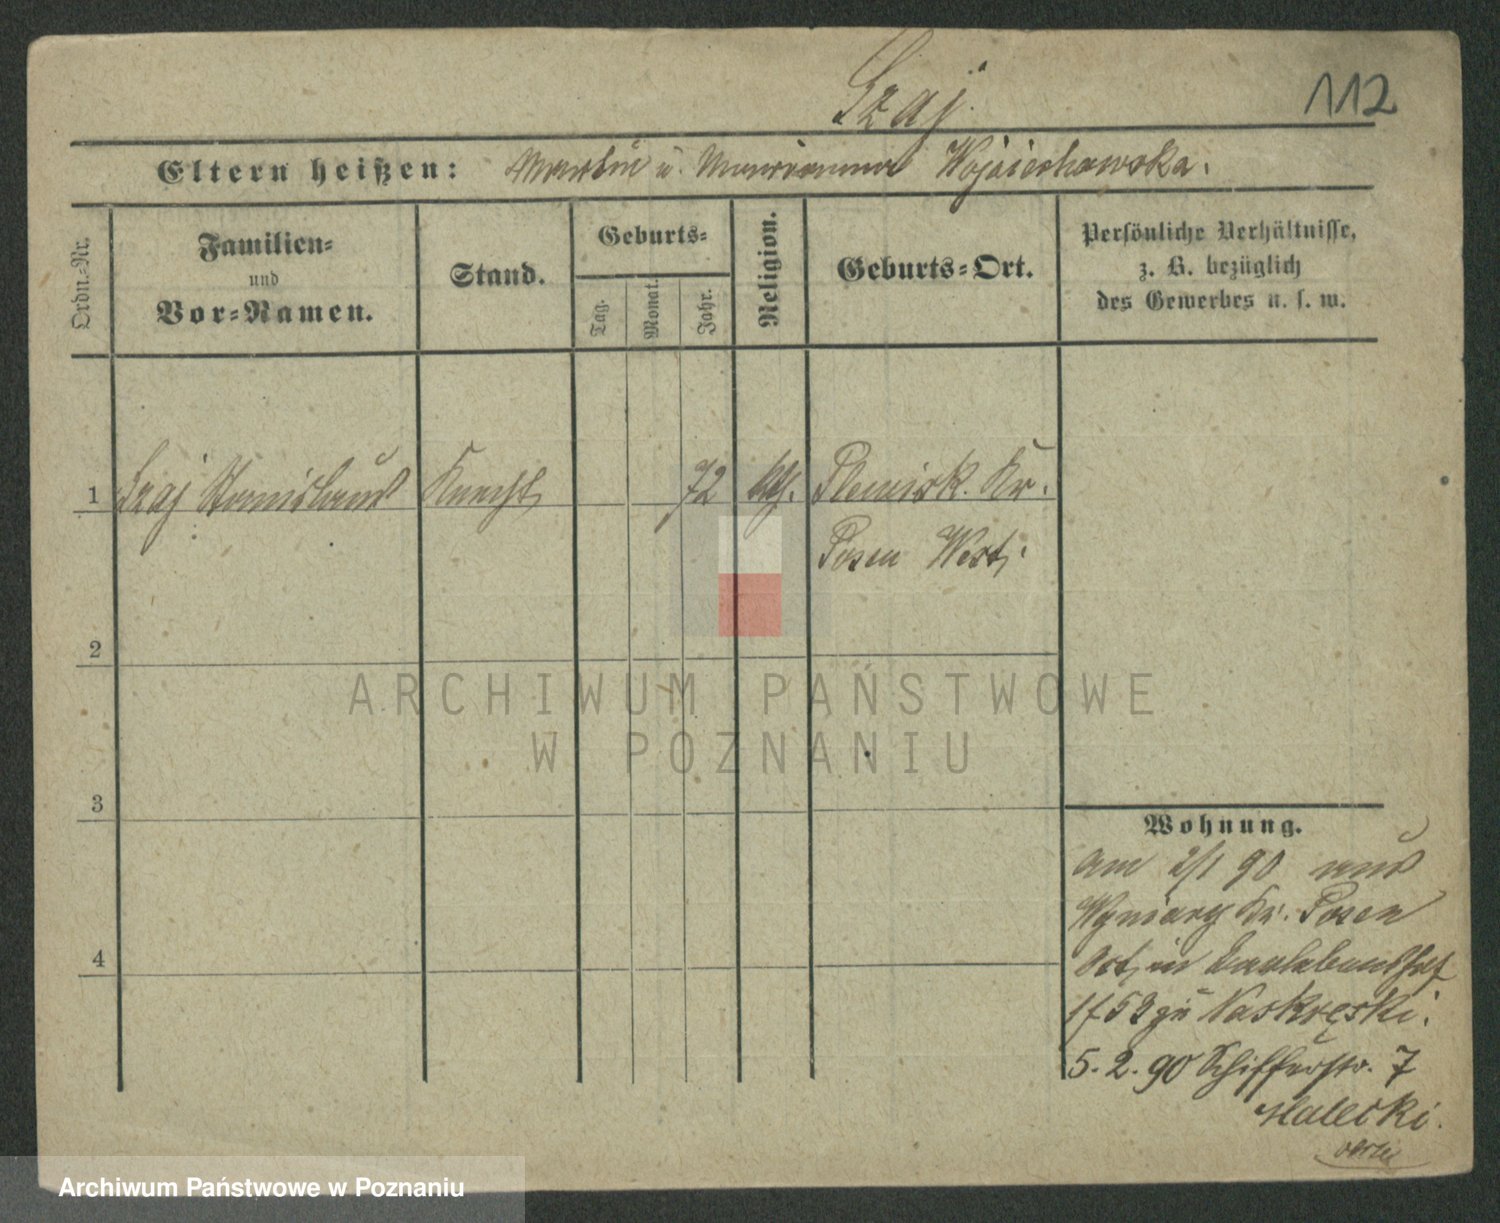 Szaj
112
Eltern heißen: Martin u. Marianna Wojciechowska.
Ordn.-Nr.
Familien-
und
Vor-Namen.
Stand.
Geburts-
Tag.
Monat.
Jahr.
Religion.
Geburts-Ort.
Persönliche Verhältnisse,
z. B. bezüglich
des Gewerbes u. s. w.
1 Szaj Stanislaus Knecht 72 kth. Plewisk. Kr.
Posen West.
2
3
4
Wohnung.
Am 2/1 90 aus
Kr. Posen
Ost, in
zu Naskręski.
5. 2. 90 Schifferstr. 7
Malecki.
ARCHIWUM PAŃSTWOWE
W POZNANIU
Archiwum Państwowe w Poznaniu